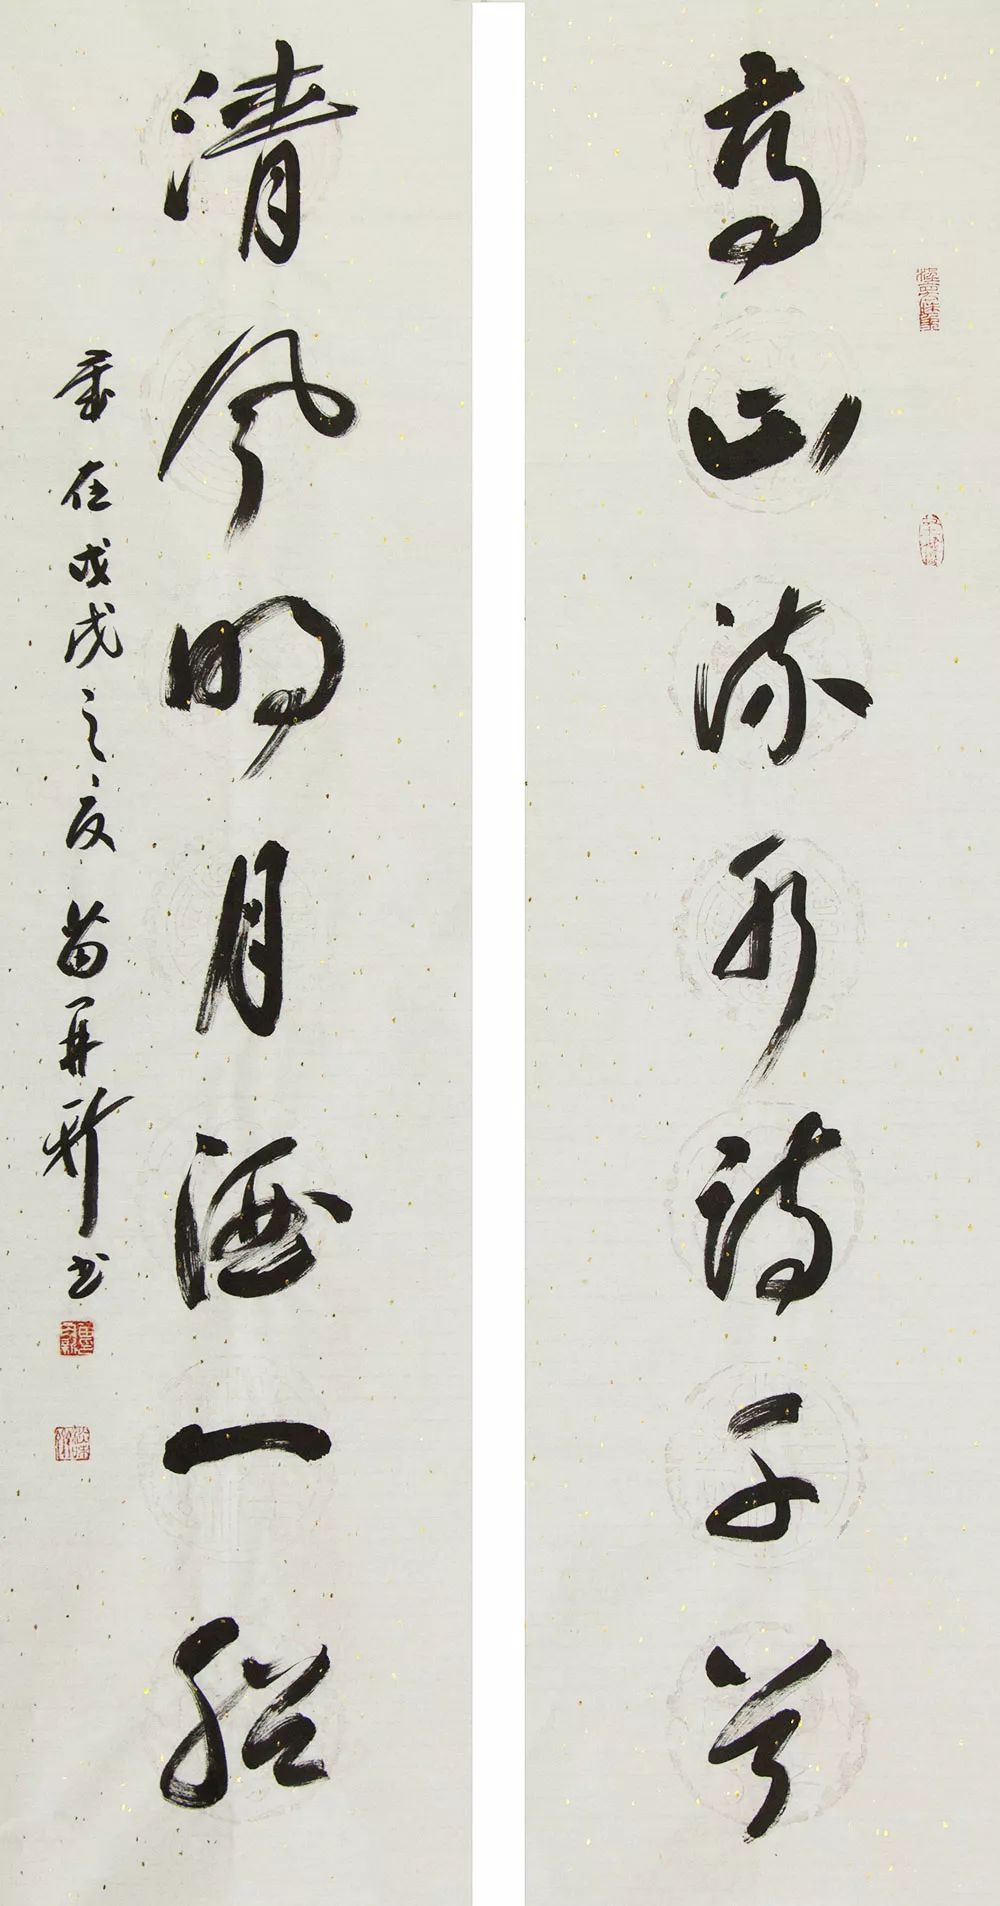 高山流水诗千首
清风明月酒一船
岁在戊戌之夏苗再新书